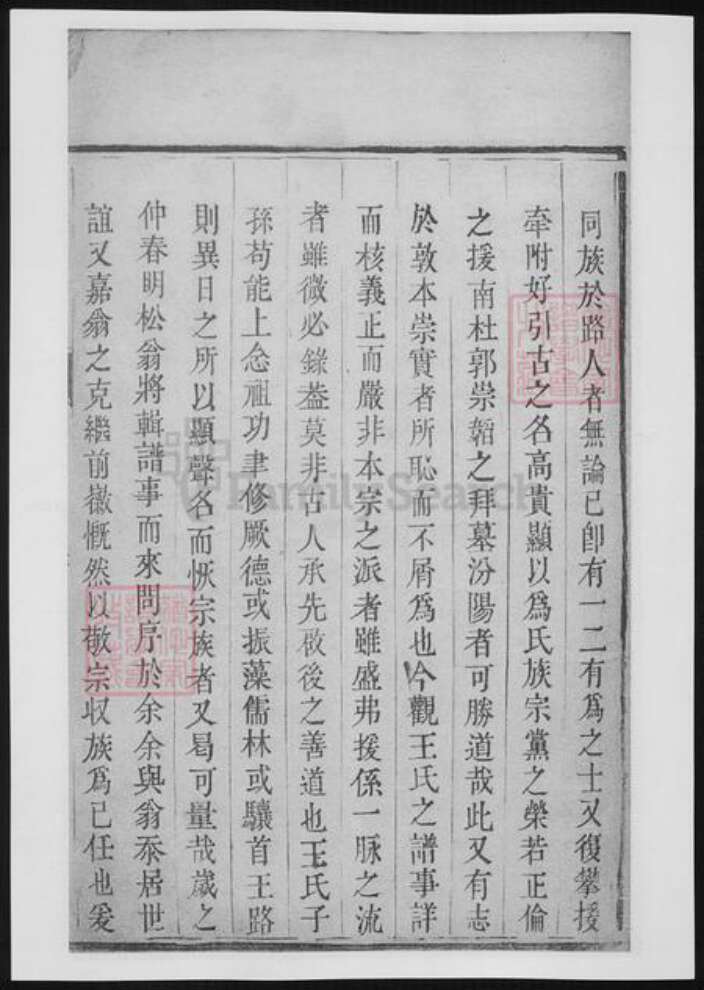 同族於路人者無論已卽有一二有爲之士又復攀援
牽附好引古之名高貴顯以爲氏族宗黨之榮若正倫
之援南杜郭崇韜之拜墓汾陽者可勝道哉此又有志
於敦本崇實者所恥而不屑爲也今觀王氏之譜事詳
而核義正而嚴非本宗之派者雖盛弗援係一脉之流
者雖微必錄葢莫非古人承先啟後之善道也王氏子
孫苟能上念祖功聿修厥德或振藻儒林或驤首王路
則異日之所以顯聲名而恢宗族者又曷可量哉歲之
仲春明松翁將輯譜事而來問序於余余與翁忝居世
誼又嘉翁之克繼前徽慨然以敬宗収族爲己任也爰
FamilySearch